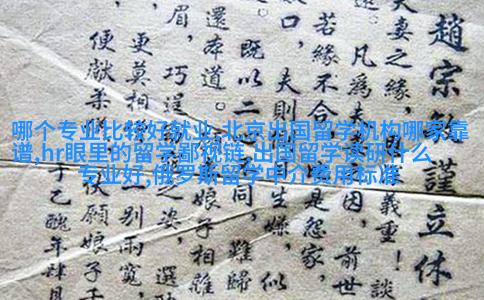 哪个专业比较好就业,北京出国留学机构哪家靠
谱,hr眼里的留学鄙视链,出国留学读研什么
专业好,俄罗斯留学中介费用标准
趙宗謹立休
夫妻之緣，義重！談
遠。凡爲夫因，前世
若緣不合，是怨家，
口，夫則生嫌，似
既以二同，難歸
還本道。娘子相離
眉，巧逞之姿，選
更莫相一別兩寬，
便献柔伏願娘子千
于乙醜年肆月